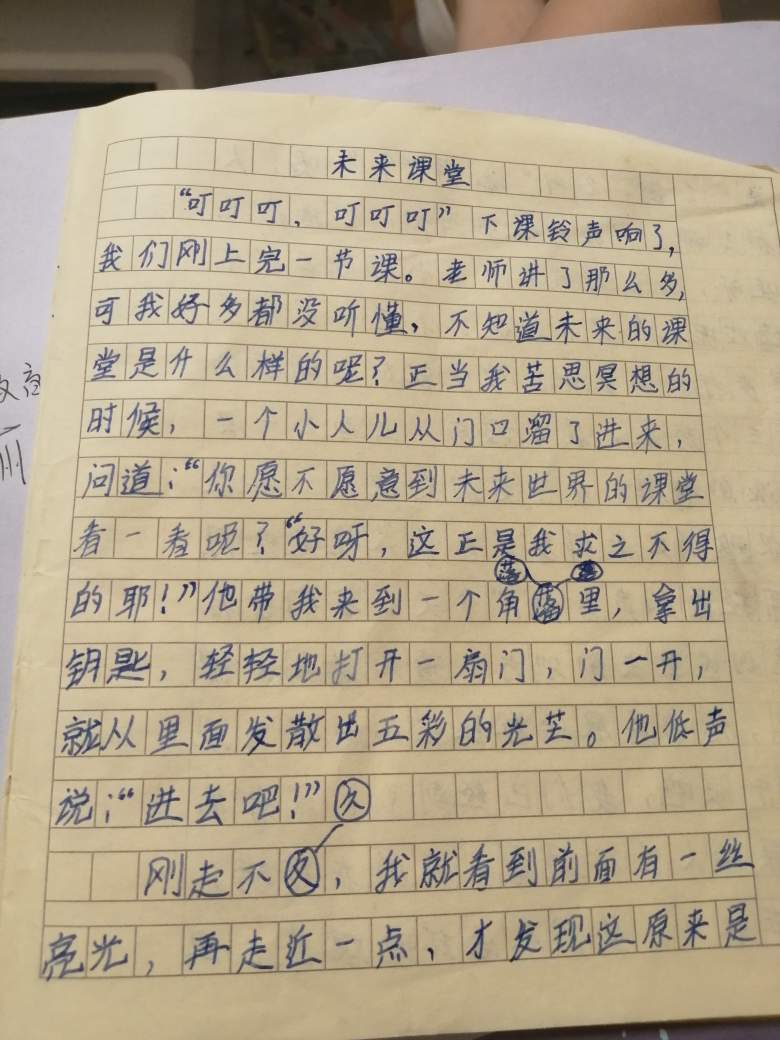 未来课堂
“叮叮叮，叮叮叮”下课铃声响了，
我们刚上完一节课。老师讲了那么多，
可我好多都没听懂，不知道未来的课
堂是什么样的呢？正当我苦思冥想的
时候，一个小人儿从门口溜了进来，
问道：“你愿不愿意到未来世界的课堂
看一看呢？“好呀，这正是我求之不得
的耶！”他带我来到一个角落里，拿出
钥匙，轻轻地打开一扇门，门一开，
就从里面发散出五彩的光芒。他低声
说：“进去吧！”
刚走不久，我就看到前面有一丝
亮光，再走近一点，才发现这原来是